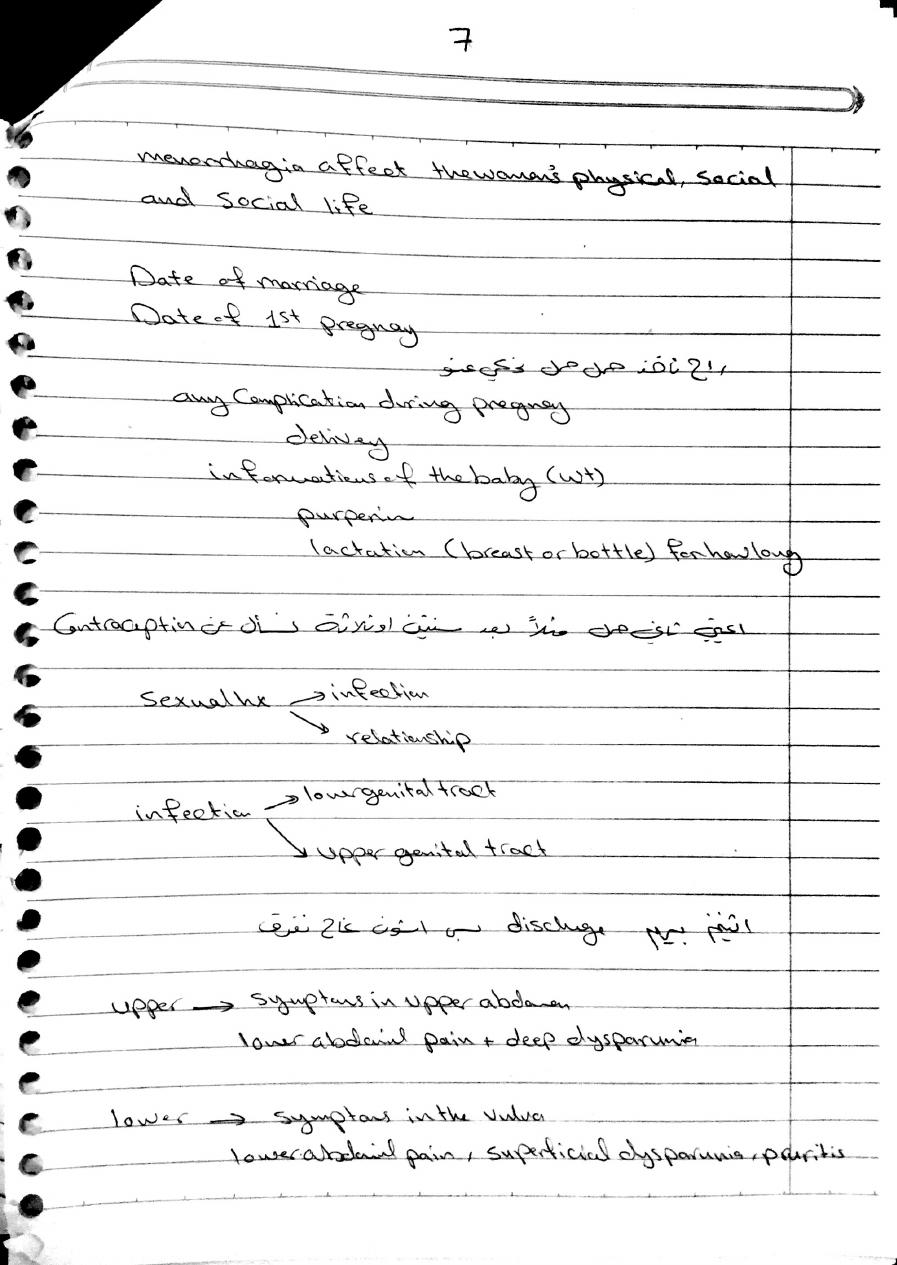 7
menorrhagia affect the women's physical, social
and social life
Date of marriage
Date of 1st pregnay
راح ناخذ حمل حمل نحكي عنو
any Complication during pregney
delivey
informations of the baby (wt)
purperin
lactation (breast or bottle) for how long
اجت تاني حمل مثلاً بعد سنتين او ثلاثة نسأل عن Contraceptin
Sexual hx → infection
↘ relationship
infection → lower genital tract
↘ upper genital tract
discharge بس
upper → symptoms in upper abdomen
lower abdominl pain + deep dysparunia
lower → symptoms in the vulva
lower abdominl pain, superficial dysparunia, pruritis